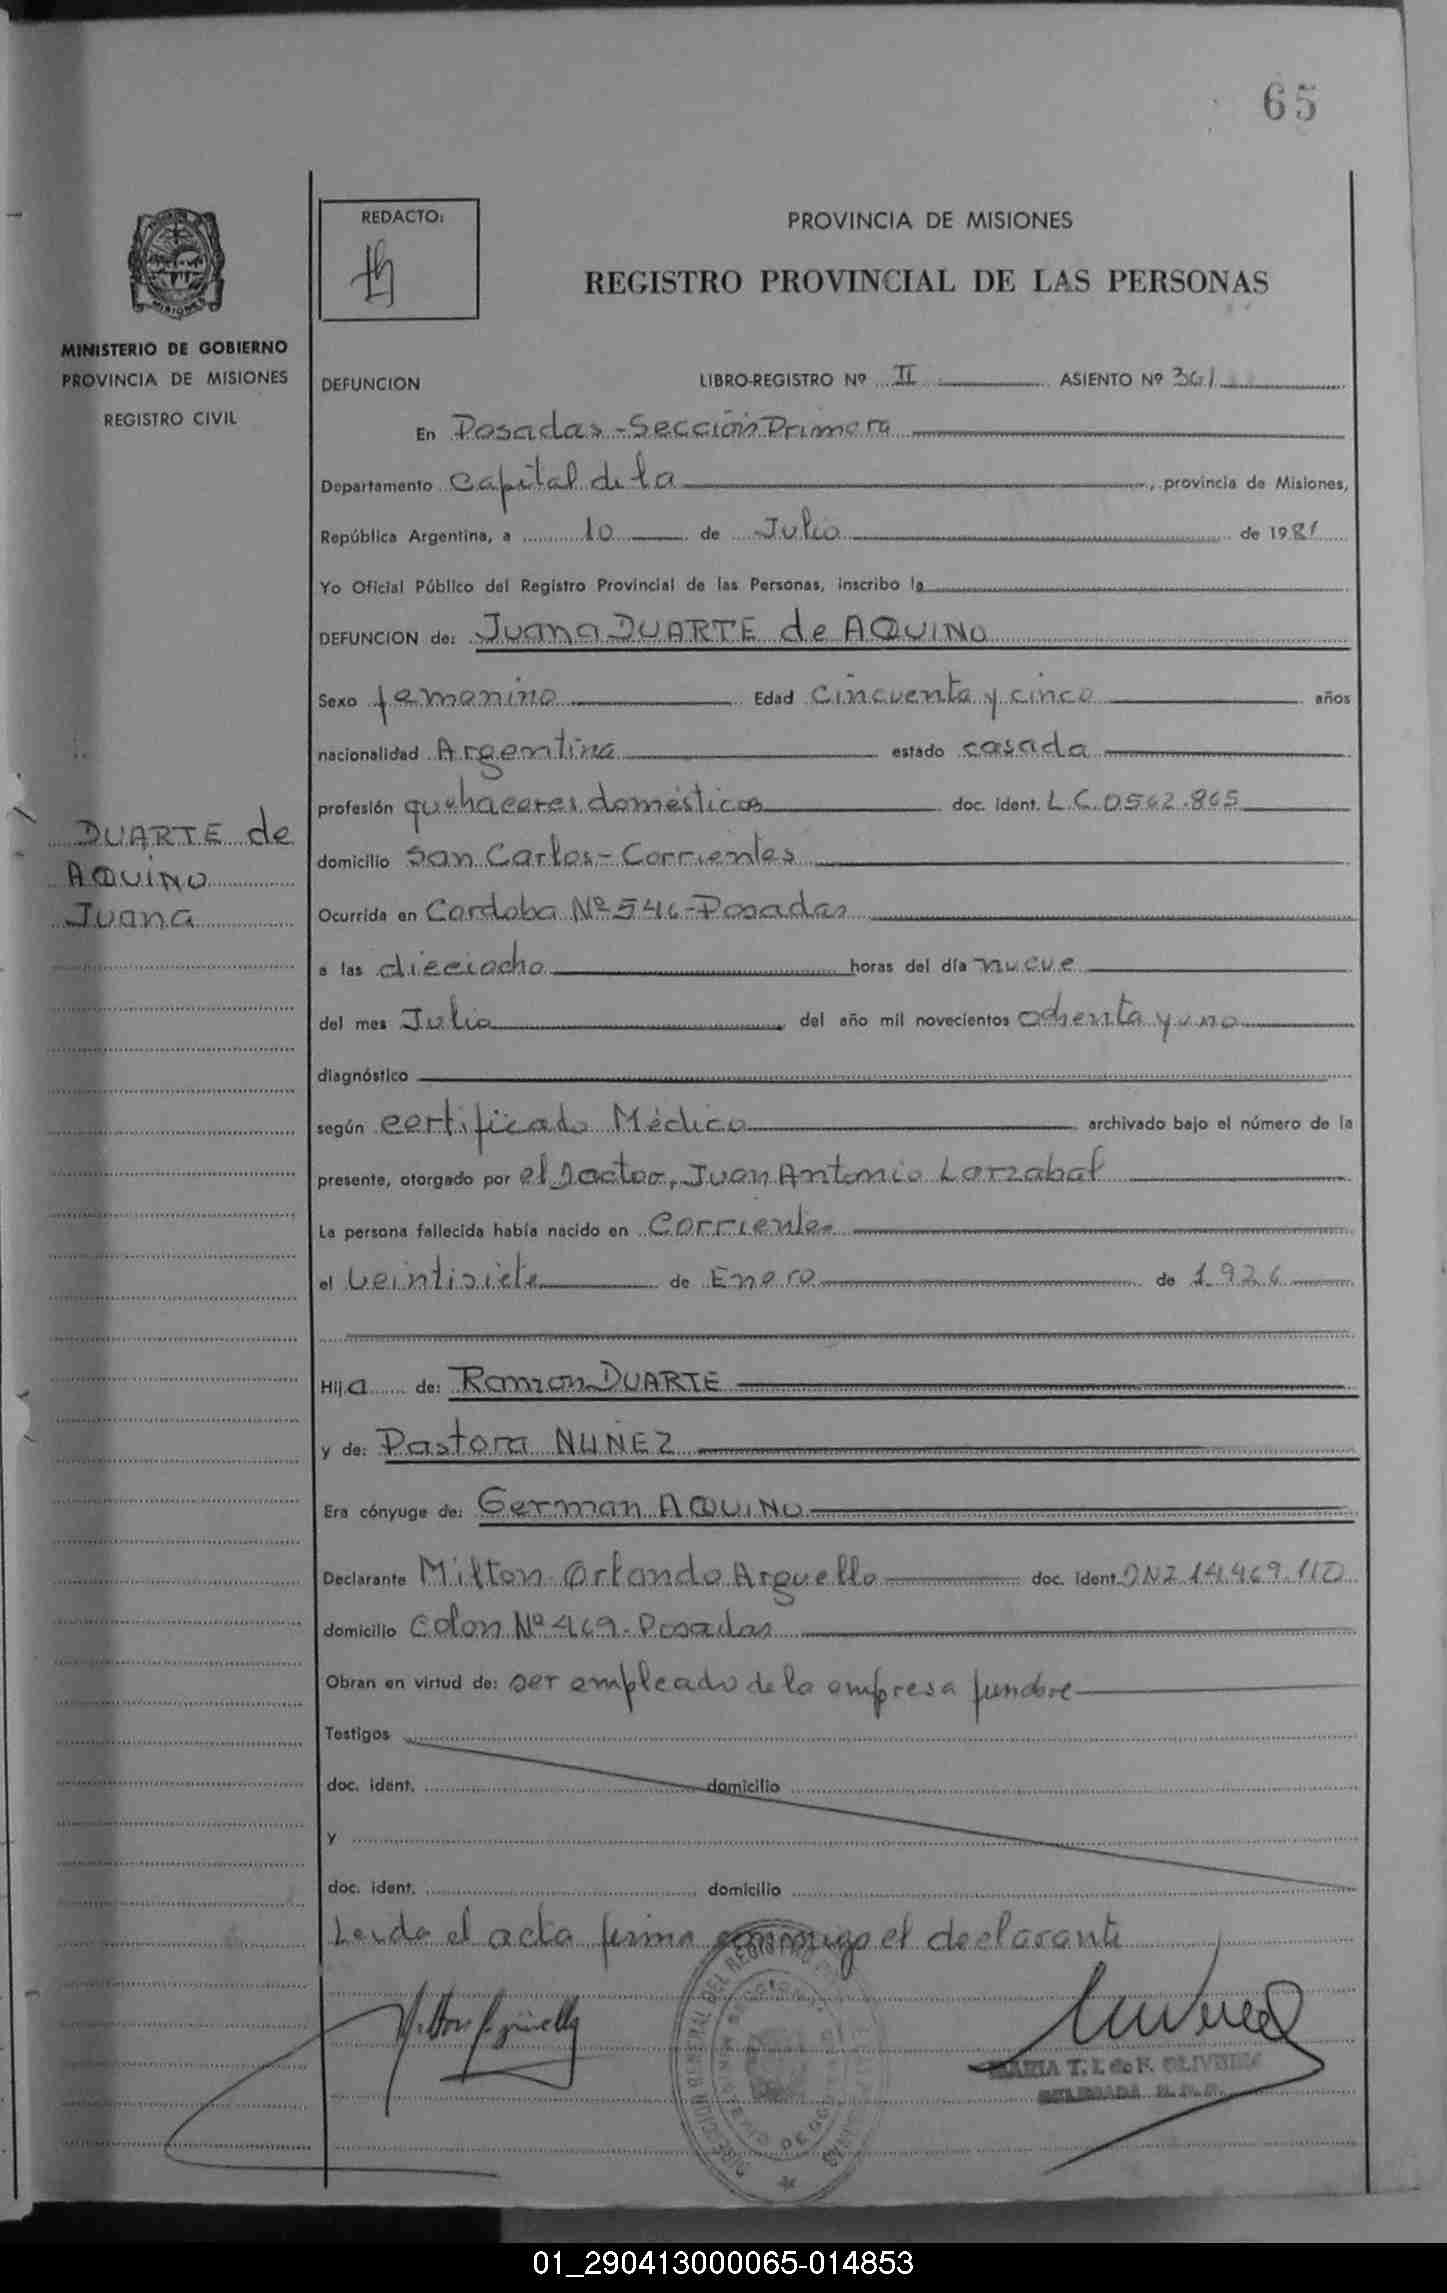 65
REDACTO:
PROVINCIA DE MISIONES
REGISTRO PROVINCIAL DE LAS PERSONAS
MINISTERIO DE GOBIERNO
PROVINCIA DE MISIONES
REGISTRO CIVIL
DEFUNCION LIBRO-REGISTRO Nº II ASIENTO Nº 361
En Posadas - Sección Primera
Departamento Capital de la , provincia de Misiones,
República Argentina, a 10 de Julio de 1981
Yo Oficial Público del Registro Provincial de las Personas, inscribo la
DEFUNCION de: Juana DUARTE de AQUINO
Sexo femenino Edad cincuenta y cinco años
nacionalidad Argentina estado casada
profesión quehaceres domésticos doc. ident. L.C. 0562.865
DUARTE de
AQUINO
Juana
domicilio San Carlos - Corrientes
Ocurrida en Cordoba Nº 546 - Posadas
a las dieciocho horas del día nueve
del mes Julio del año mil novecientos ochenta y uno
diagnóstico
según certificado Médico archivado bajo el número de la
presente, otorgado por el Doctor, Juan Antonio Larzabal
La persona fallecida había nacido en Corrientes
el veintisiete de Enero de 1926
Hija de: Ramon DUARTE
y de: Pastora NUÑEZ
Era cónyuge de: German AQUINO
Declarante Milton Orlando Arguello doc. ident. DNI 14.469.110
domicilio Colon Nº 469 - Posadas
Obran en virtud de: ser empleado de la empresa funebre
Testigos
doc. ident. domicilio
y
doc. ident. domicilio
Leida el acta firma conmigo el declarante
MARIA T. I. de F. OLIVEIRA
DELEGADA
01_290413000065-014853